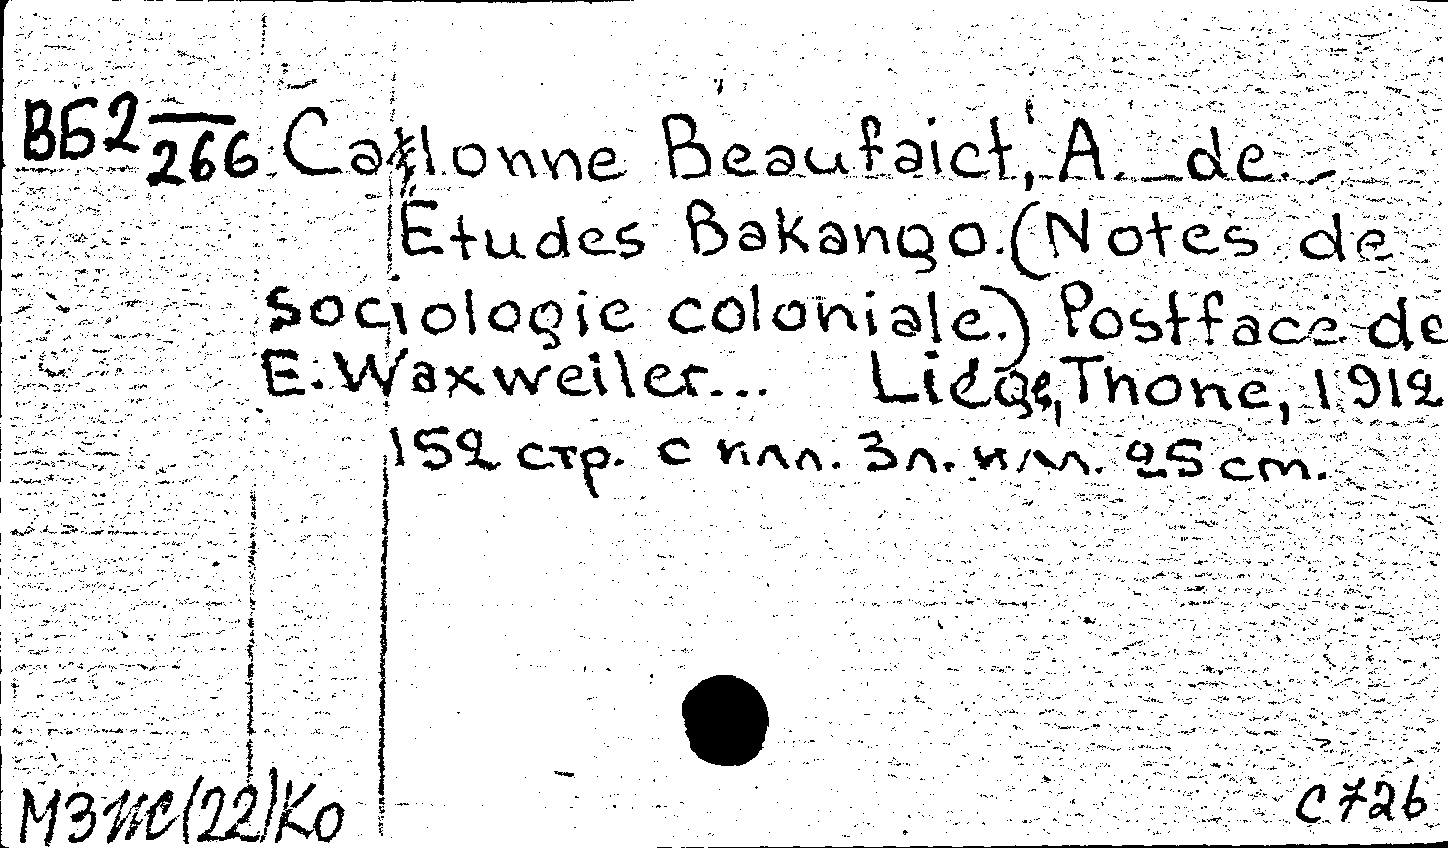 ВБ2 266 Callonne Beaufaict, A. de.
Etudes Bakango. (Notes de
sociologie coloniale.) Postface de
E. Waxweiler... Liége, Thone, 1912
152 стр. с илл. 3 л. илл. 25 cm.
С726